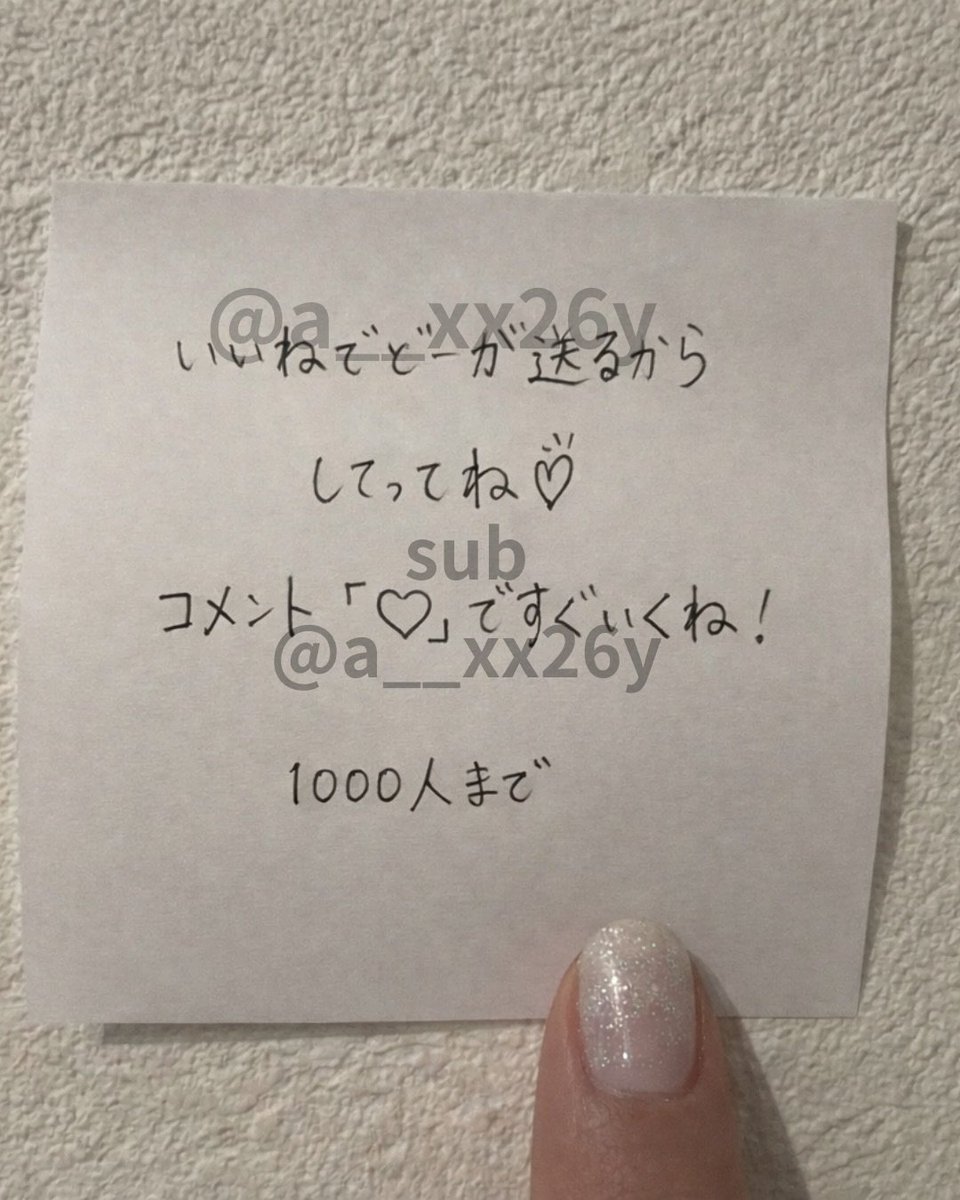 @a__xx26y
いいねでどーが送るから
してってね♡
sub
コメント「♡」ですぐいくね!
@a__xx26y
1000人まで